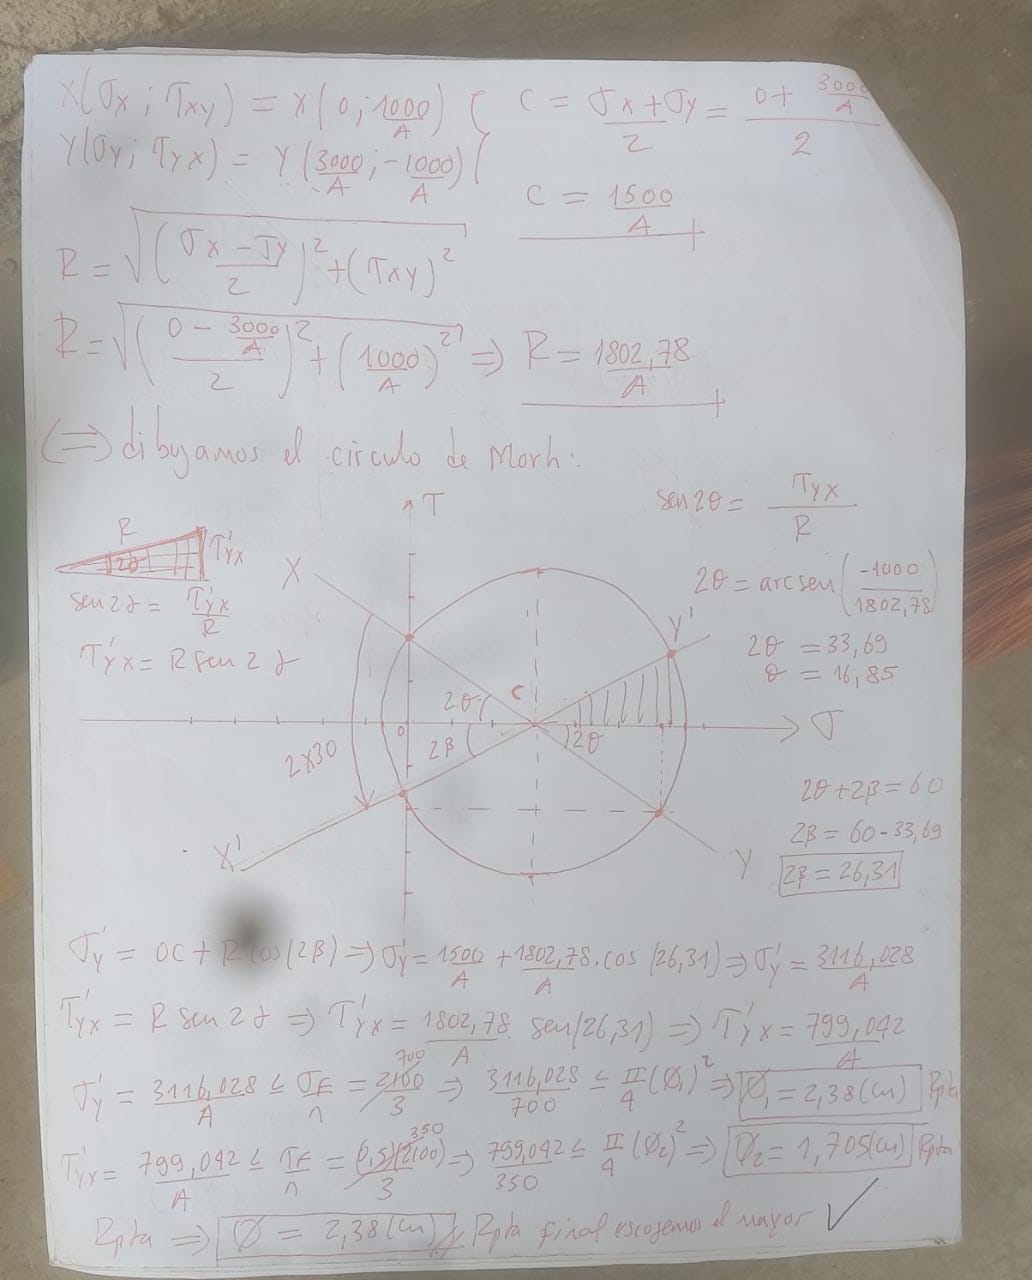 X(σx ; τxy) = X(0 ; 1000/A)
Y(σy ; τyx) = Y(3000/A ; -1000/A)
C = (σx + σy)/2 = (0 + 3000/A)/2
C = 1500/A
R = √(((σx - σy)/2)² + (τxy)²)
R = √(((0 - 3000/A)/2)² + (1000/A)²) ⇒ R = 1802,78/A
(⇒) dibujamos el círculo de Morh:
sen 2θ = τyx/R
2θ = arcsen(-1000/1802,78)
2θ = 33,69
θ = 16,85
R
2γ
τ'yx
sen 2γ = τ'yx/R
τ'yx = R sen 2γ
τ
X
Y'
2θ
C
0
2β
2θ
σ
2x30
X'
Y
2θ + 2β = 60
2β = 60 - 33,69
2β = 26,31
σ'y = OC + R cos(2β) ⇒ σ'y = 1500/A + 1802,78/A . cos(26,31) ⇒ σ'y = 3116,028/A
τ'yx = R sen 2γ ⇒ τ'yx = 1802,78/A . sen(26,31) ⇒ τ'yx = 799,042/A
σ'y = 3116,028/A ≤ σF/n = 2100/3 700 ⇒ 3116,028/700 ≤ π/4 (Ø₁)² ⇒ Ø₁ = 2,38 (cm) Rpta
τ'yx = 799,042/A ≤ τF/n = (0,5)(2100)/3 350 ⇒ 799,042/350 ≤ π/4 (Ø₂)² ⇒ Ø₂ = 1,705 (cm) Rpta
Rpta ⇒ Ø = 2,38 (cm) Rpta final escogemos el mayor ✓